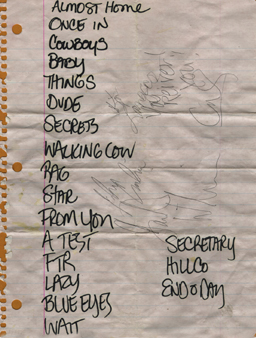 ALMOST HOME
ONCE IN
COWBOYS
BABY
THINGS
DUDE
SECRETS
WALKING COW
RAG
STAR
FROM YON
A TEST
FTR
LAZY
BLUE EYES
WAIT
SECRETARY
HILLCO
END O DAY